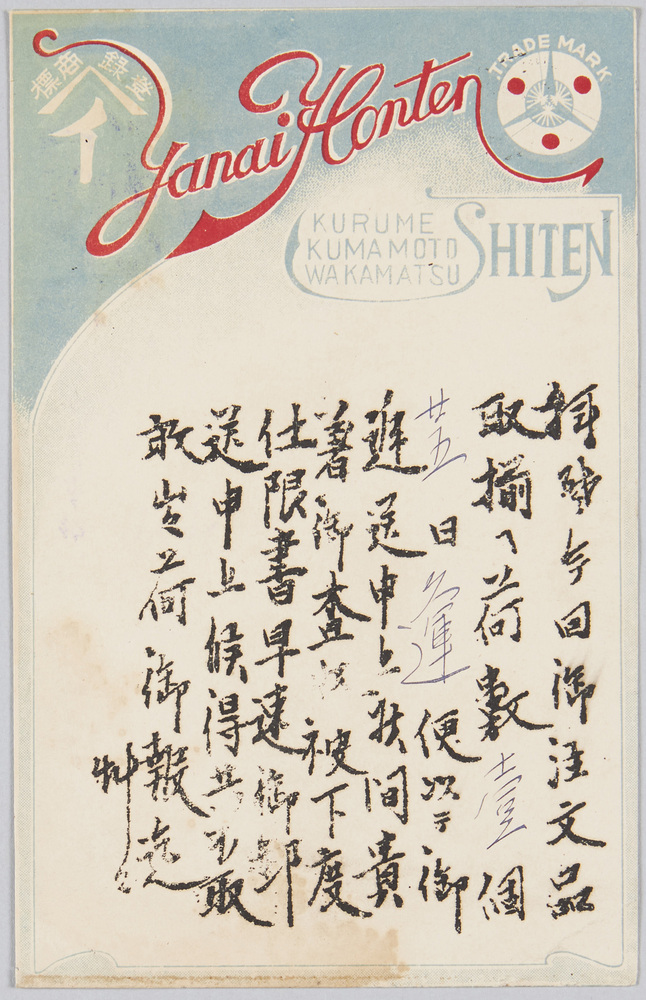 登録商標
イ
Yanai Honten
TRADE MARK
KURUME
KUMAMOTO
WAKAMATSU
SHITEN
拝啓今回御注文品
取揃へ荷数壹個
廿五日久運便以テ御
逓送申上候間貴
着御査収被下度
仕限書早速御郵
送申上候得共不取
敢出荷御報迄
艸々